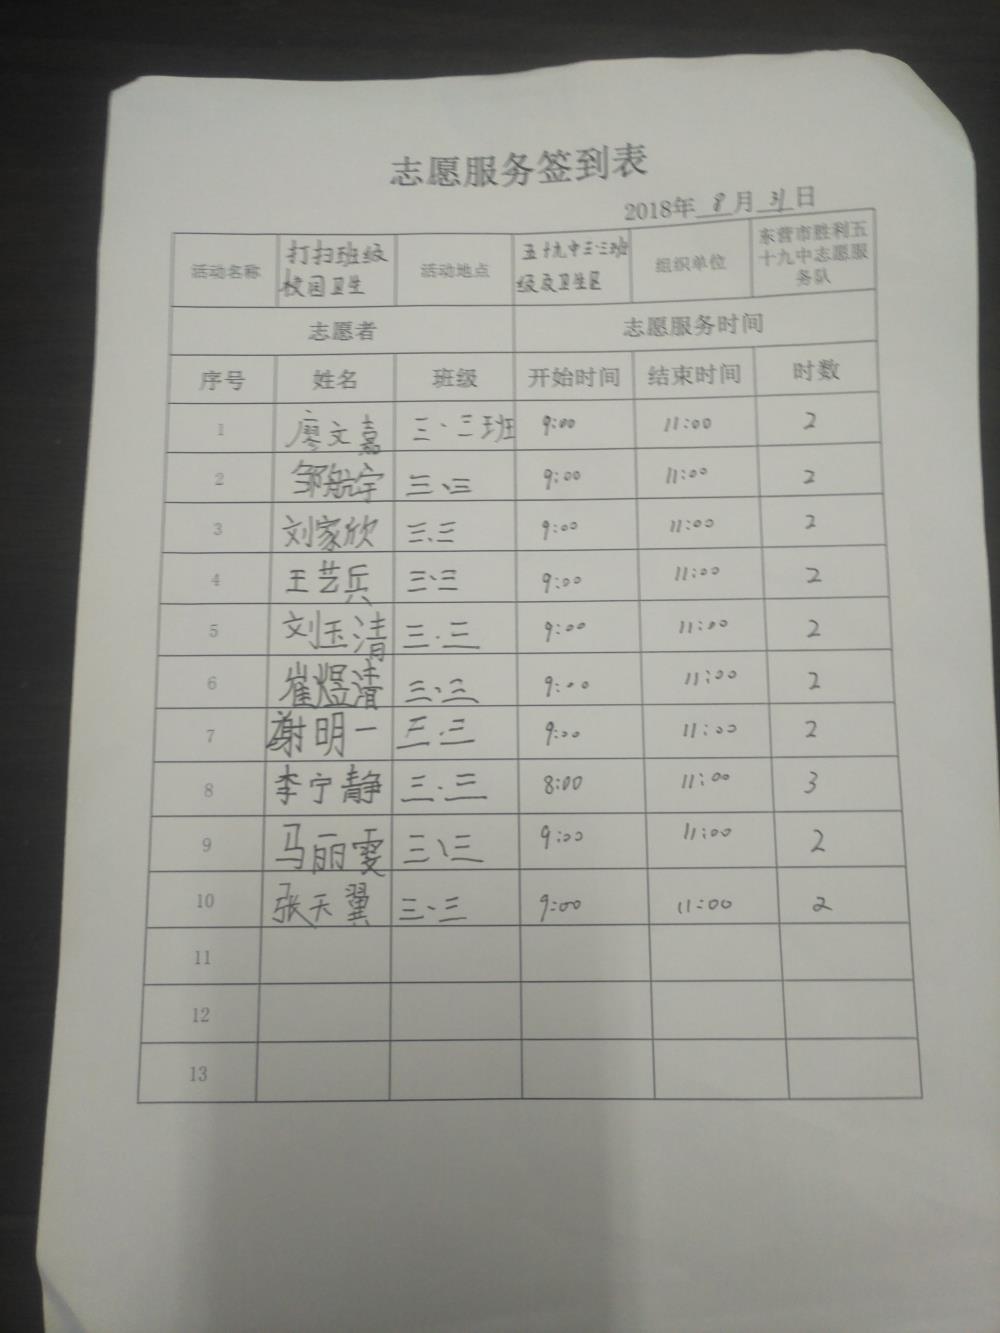 志愿服务签到表
2018年 8 月 31 日
活动名称 打扫班级校园卫生 活动地点 五十九中三·三班级及卫生区 组织单位 东营市胜利五十九中志愿服务队
志愿者 志愿服务时间
序号 姓名 班级 开始时间 结束时间 时数
1 廖文嘉 三·三班 9:00 11:00 2
2 邹航宇 三、三 9:00 11:00 2
3 刘家欣 三、三 9:00 11:00 2
4 王艺兵 三、三 9:00 11:00 2
5 刘玉清 三·三 9:00 11:00 2
6 崔煜清 三、三 9:00 11:00 2
7 谢明一 三·三 9:00 11:00 2
8 李宁静 三·三 8:00 11:00 3
9 马丽雯 三、三 9:00 11:00 2
10 张天翼 三、三 9:00 11:00 2
11
12
13